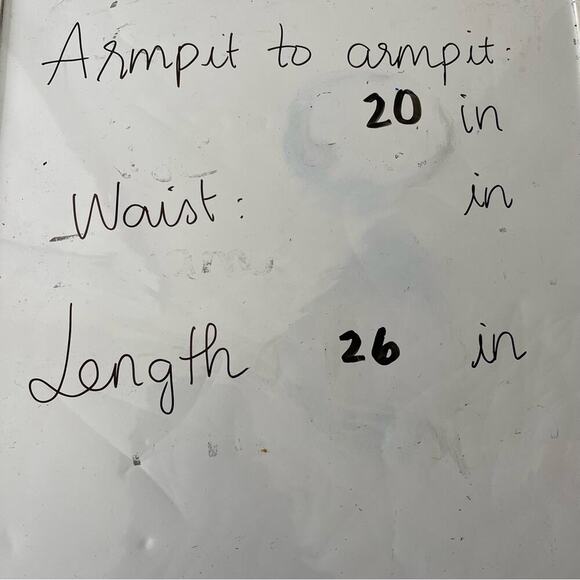 Armpit to armpit:
20 in
Waist: in
Length 26 in